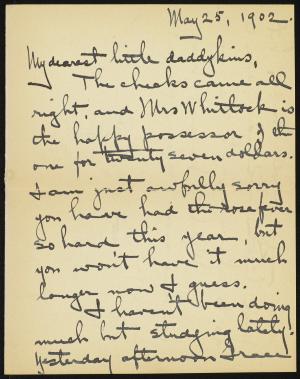 May 25, 1902.
My dearest little daddykins,
The checks came all
right, and Mrs Whitlock is
the happy possessor of the
one for twenty seven dollars.
I am just awfully sorry
you have had the rose fever
so hard this year, but
you won't have it much
longer now I guess.
I haven't been doing
much but studying lately.
Yesterday afternoon Grace